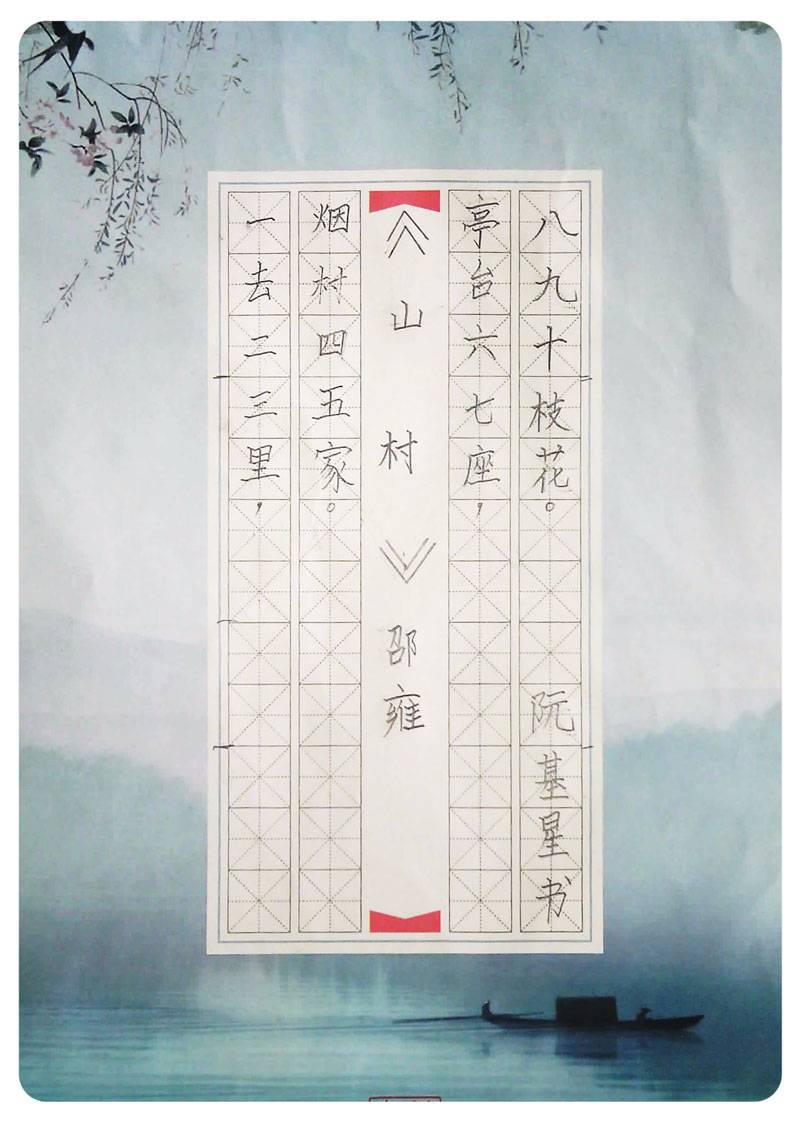 一去二三里，
烟村四五家。
《山村》邵雍
亭台六七座，
八九十枝花。
阮基星书